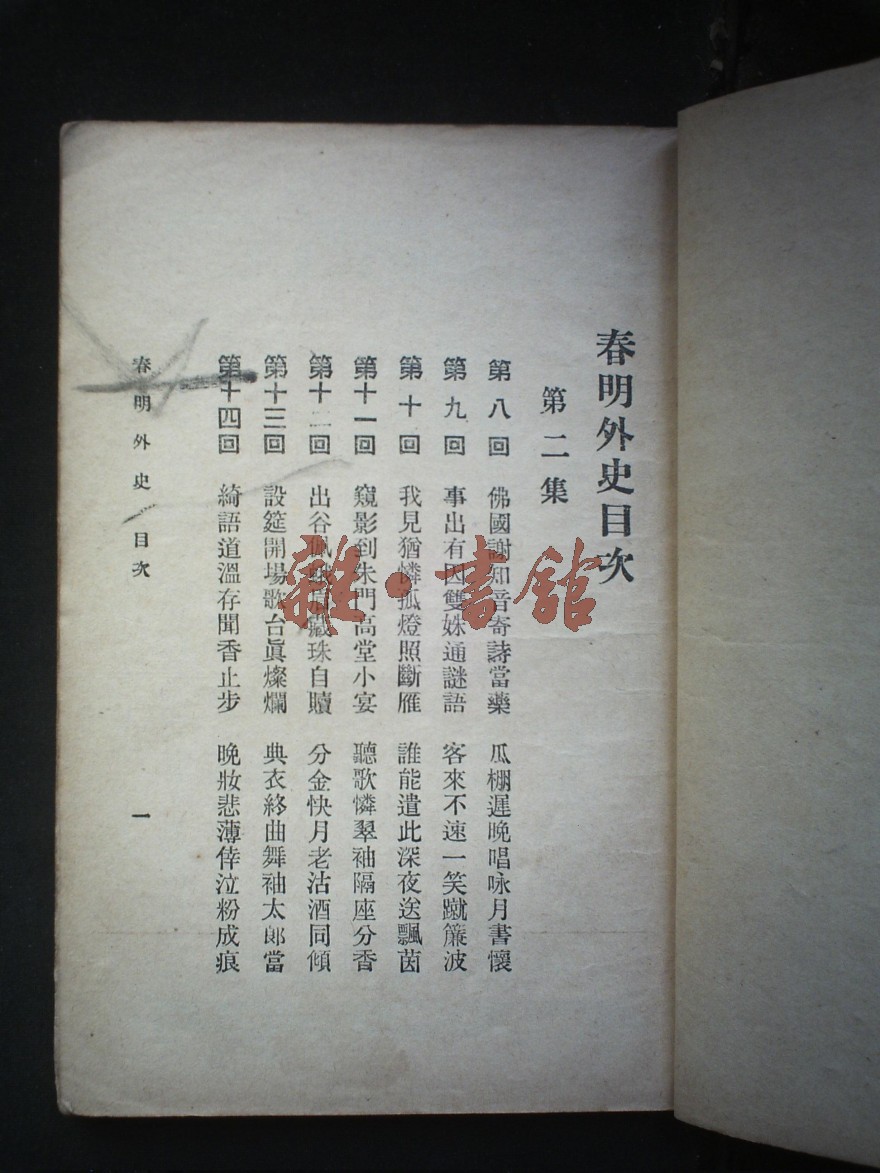 春明外史目次
第二集
第八回 佛國謝知音寄詩當藥 瓜棚遲晚唱咏月書懷
第九回 事出有因雙姝通謎語 客來不速一笑蹴簾波
第十回 我見猶憐孤燈照斷雁 誰能遣此深夜送飄茵
第十一回 窺影到朱門高堂小宴 聽歌憐翠袖隔座分香
第十二回 出谷佩 藏珠自贖 分金快月老沽酒同傾
第十三回 設筵開場歌台眞燦爛 典衣終曲舞袖太郎當
第十四回 綺語道溫存聞香止步 晚妝悲薄倖泣粉成痕
春明外史 目次
一
雜·書館